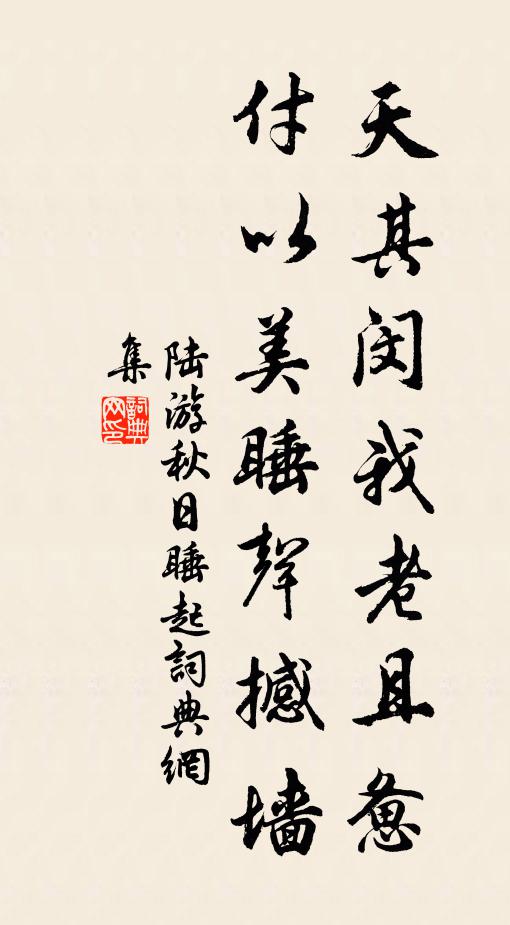 天其闵我老且惫
付以美睡聲撼墙
陆游秋日睡起詞典網
集
詞典
网印